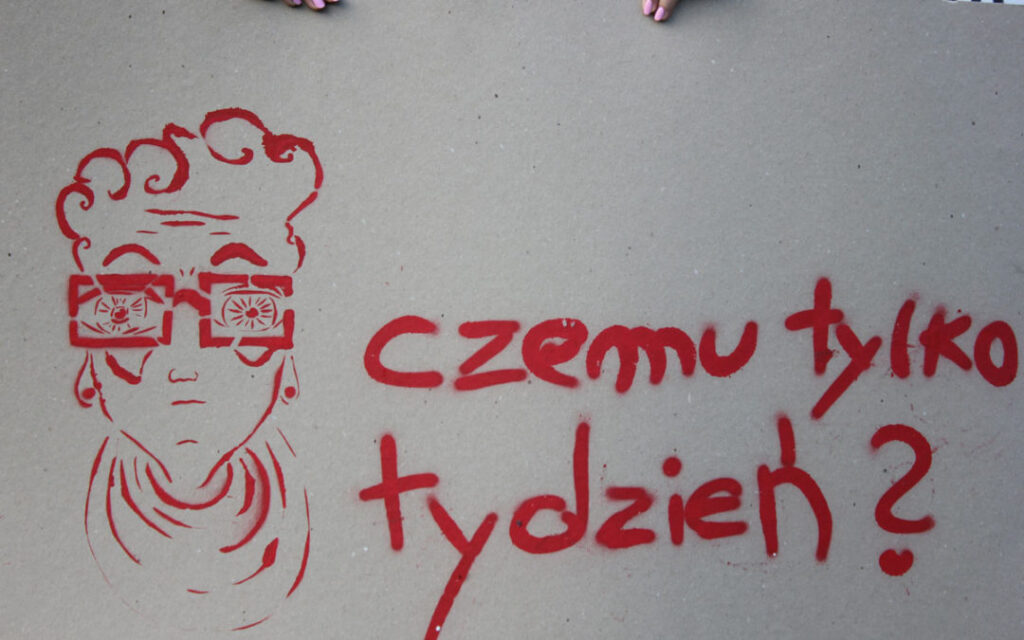 czemu tylko
tydzień?